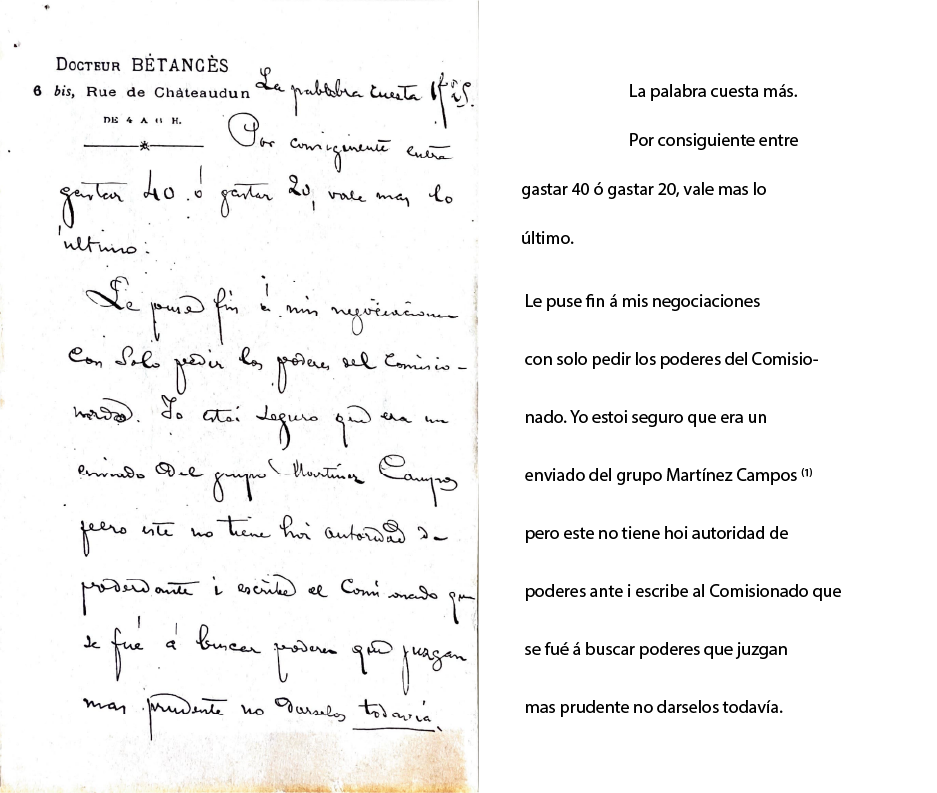 DOCTEUR BÉTANCÈS
6 bis, Rue de Châteaudun
DE 4 A 6 H.
La palabra cuesta
Por consiguiente entre
gastar 40 ó gastar 20, vale mas lo
último.
Le puse fin á mis negociaciones
con solo pedir los poderes del Comisio-
nado. Yo estoi seguro que era un
enviado del grupo Martínez Campos
pero este no tiene hoi autoridad de
poderdante i escribe el Comisionado que
se fué á buscar poderes que juzgan
mas prudente no darselos todavía.
La palabra cuesta más.
Por consiguiente entre
gastar 40 ó gastar 20, vale mas lo
último.
Le puse fin á mis negociaciones
con solo pedir los poderes del Comisio-
nado. Yo estoi seguro que era un
enviado del grupo Martínez Campos (1)
pero este no tiene hoi autoridad de
poderes ante i escribe al Comisionado que
se fué á buscar poderes que juzgan
mas prudente no darselos todavía.